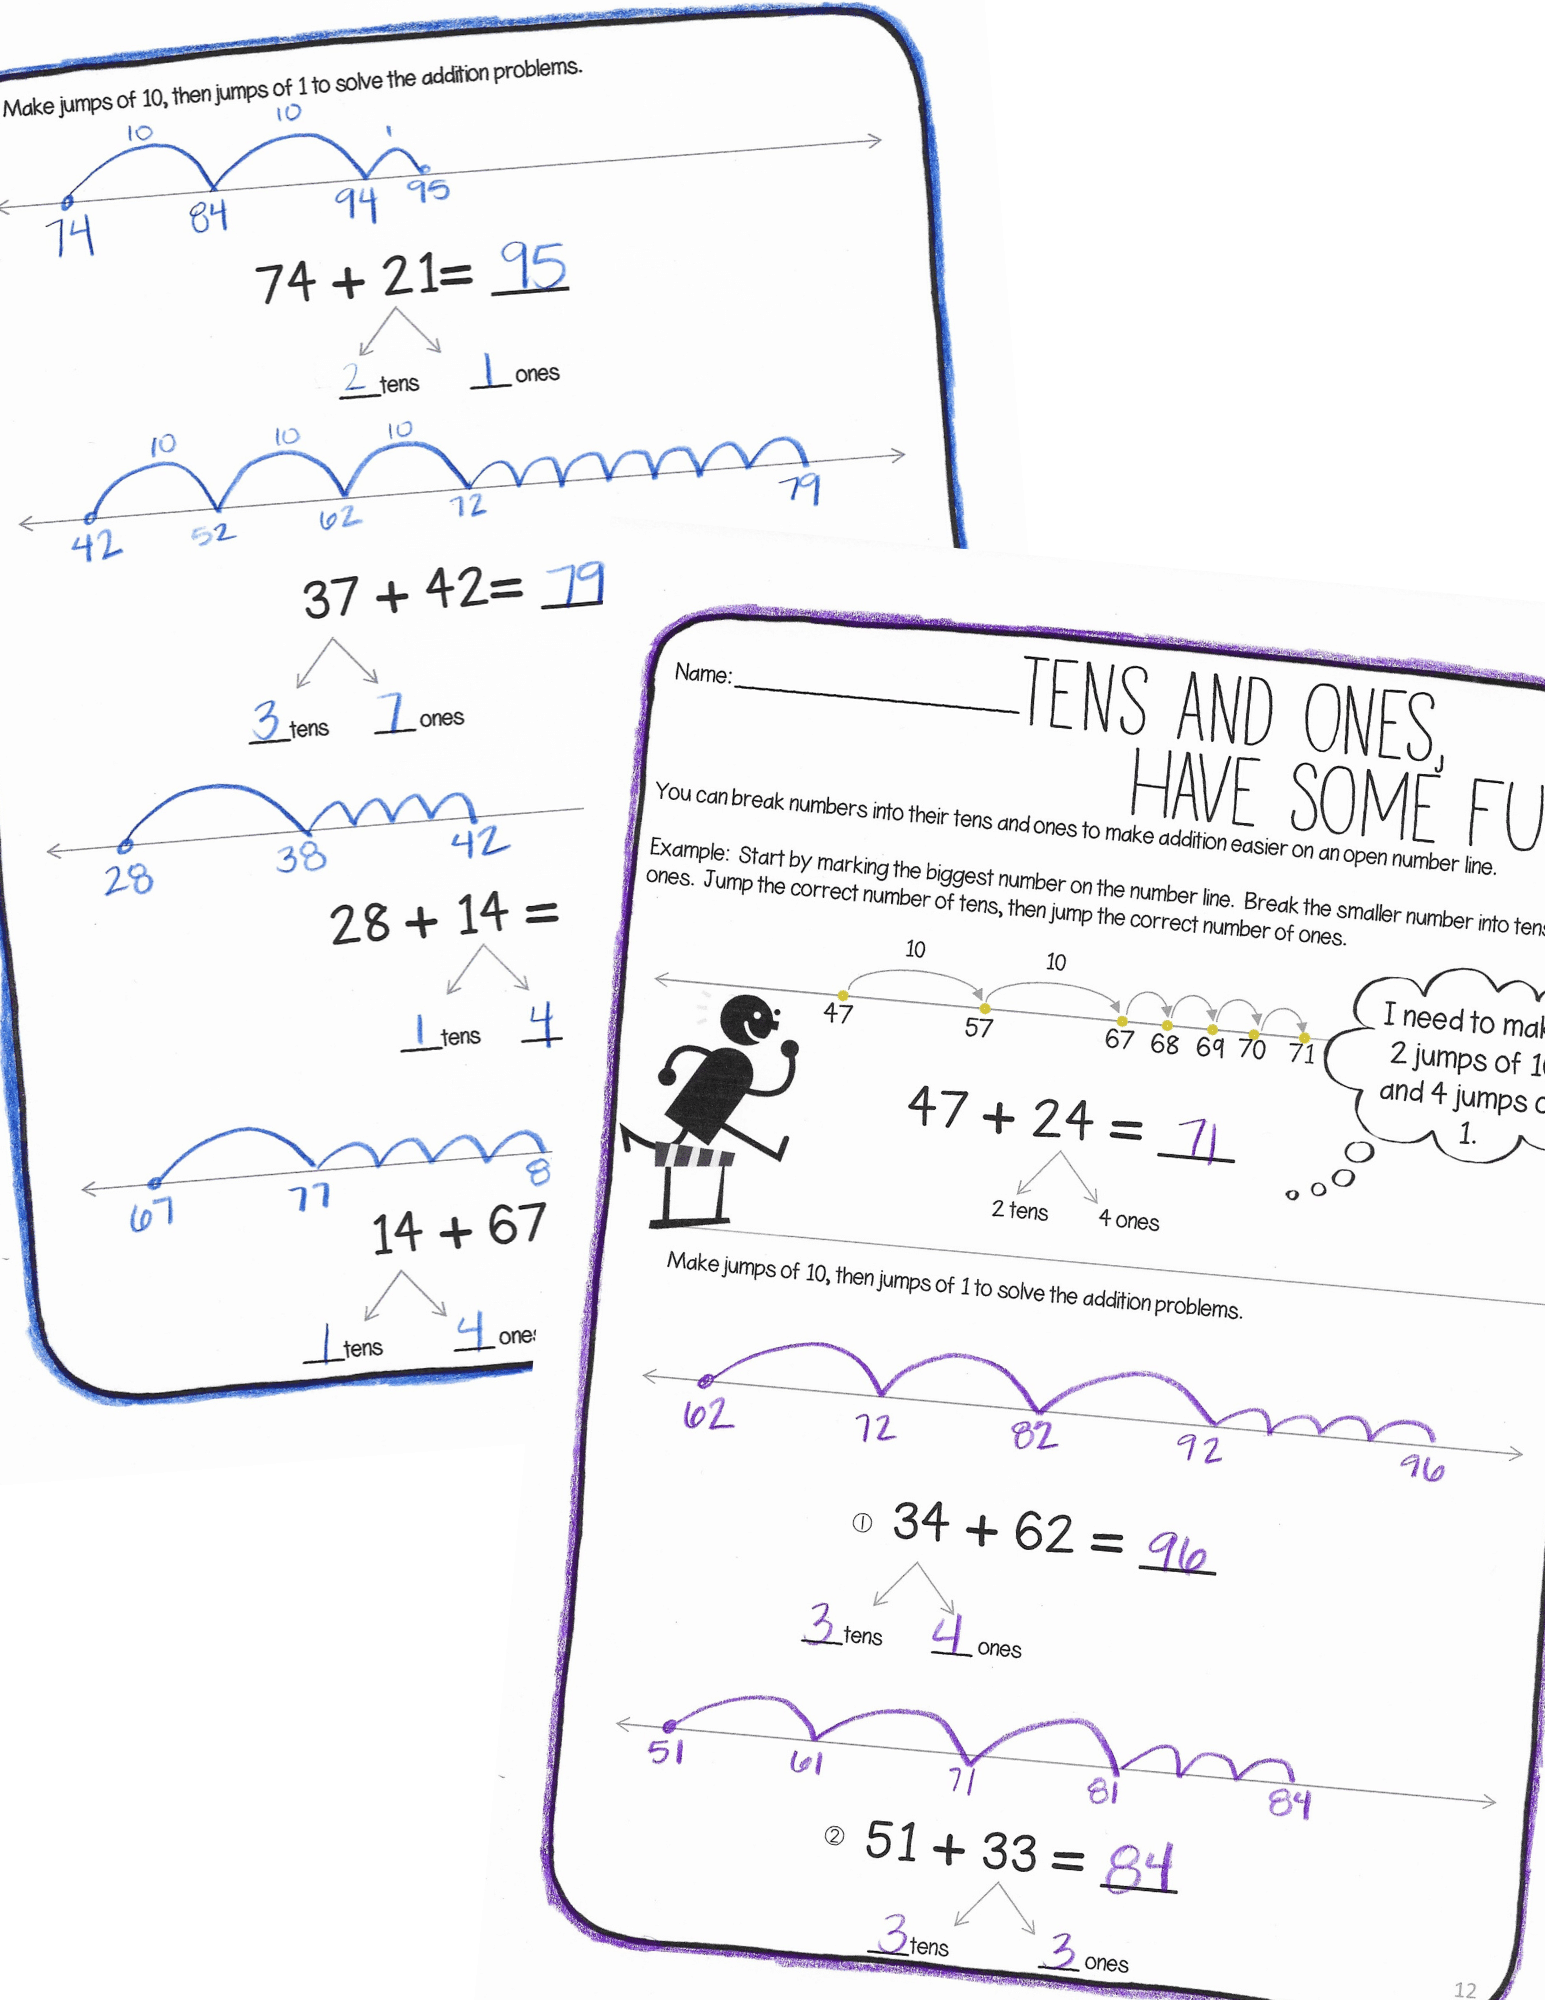 Make jumps of 10, then jumps of 1 to solve the addition problems.
10 10 1
74 84 94 95
74 + 21= 95
2 tens 1 ones
10 10 10
42 52 62 72 79
37 + 42= 79
3 tens 7 ones
28 38 42
28 + 14 =
1 tens 4
67 77 8
14 + 67
1 tens 4 ones
Name:
TENS AND ONES,
HAVE SOME FU
You can break numbers into their tens and ones to make addition easier on an open number line.
Example: Start by marking the biggest number on the number line. Break the smaller number into tens
ones. Jump the correct number of tens, then jump the correct number of ones.
10 10
47 57 67 68 69 70 71
I need to mak
2 jumps of 10
and 4 jumps o
1.
47 + 24 = 71
2 tens 4 ones
Make jumps of 10, then jumps of 1 to solve the addition problems.
62 72 82 92 96
① 34 + 62 = 96
3 tens 4 ones
51 61 71 81 84
② 51 + 33 = 84
3 tens 3 ones
12